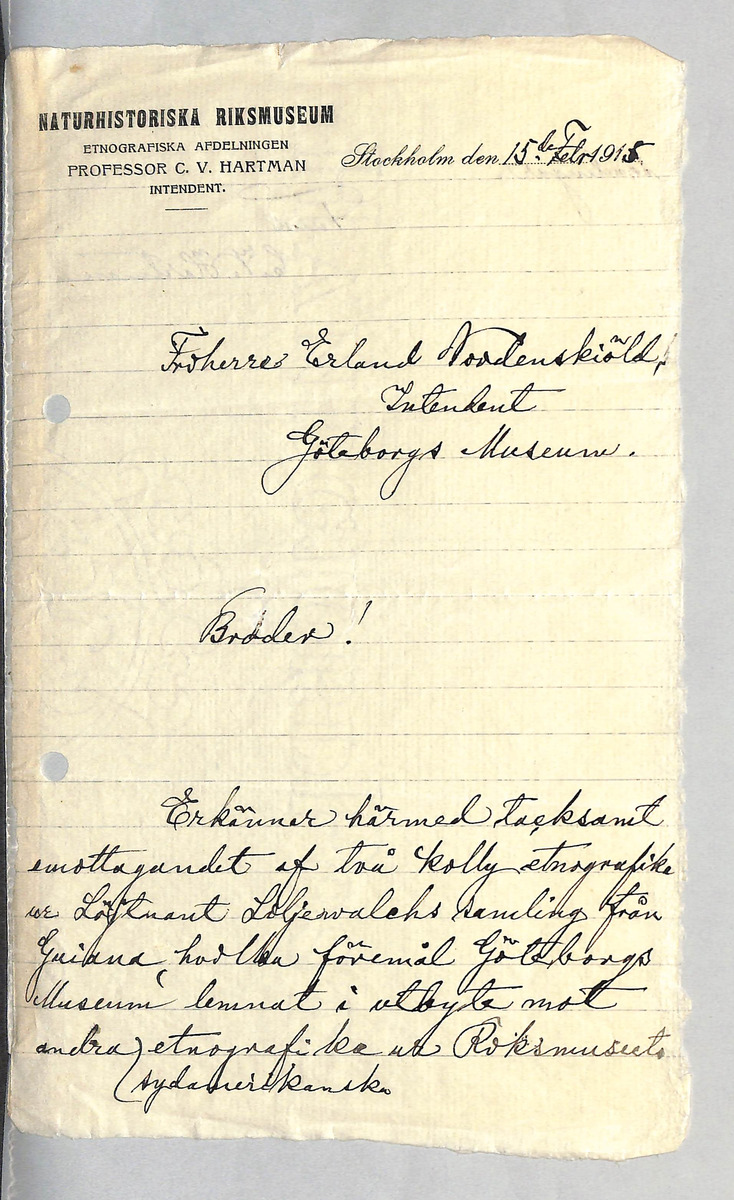 NATURHISTORISKA RIKSMUSEUM
ETNOGRAFISKA AFDELNINGEN
PROFESSOR C. V. HARTMAN
INTENDENT.
Stockholm den 15.de Febr 1915
Friherre Erland Nordenskiöld,
Intendent
Göteborgs Museum.
Broder!
Erkänner härmed tacksamt
emottagandet af två kolly etnografika
ur Löjtnant Liljervalchs samling från
Guiana, hvilka föremål Göteborgs
Museum lemnat i utbyte mot
andra) etnografika ur Riksmuseets
(sydamerikanska